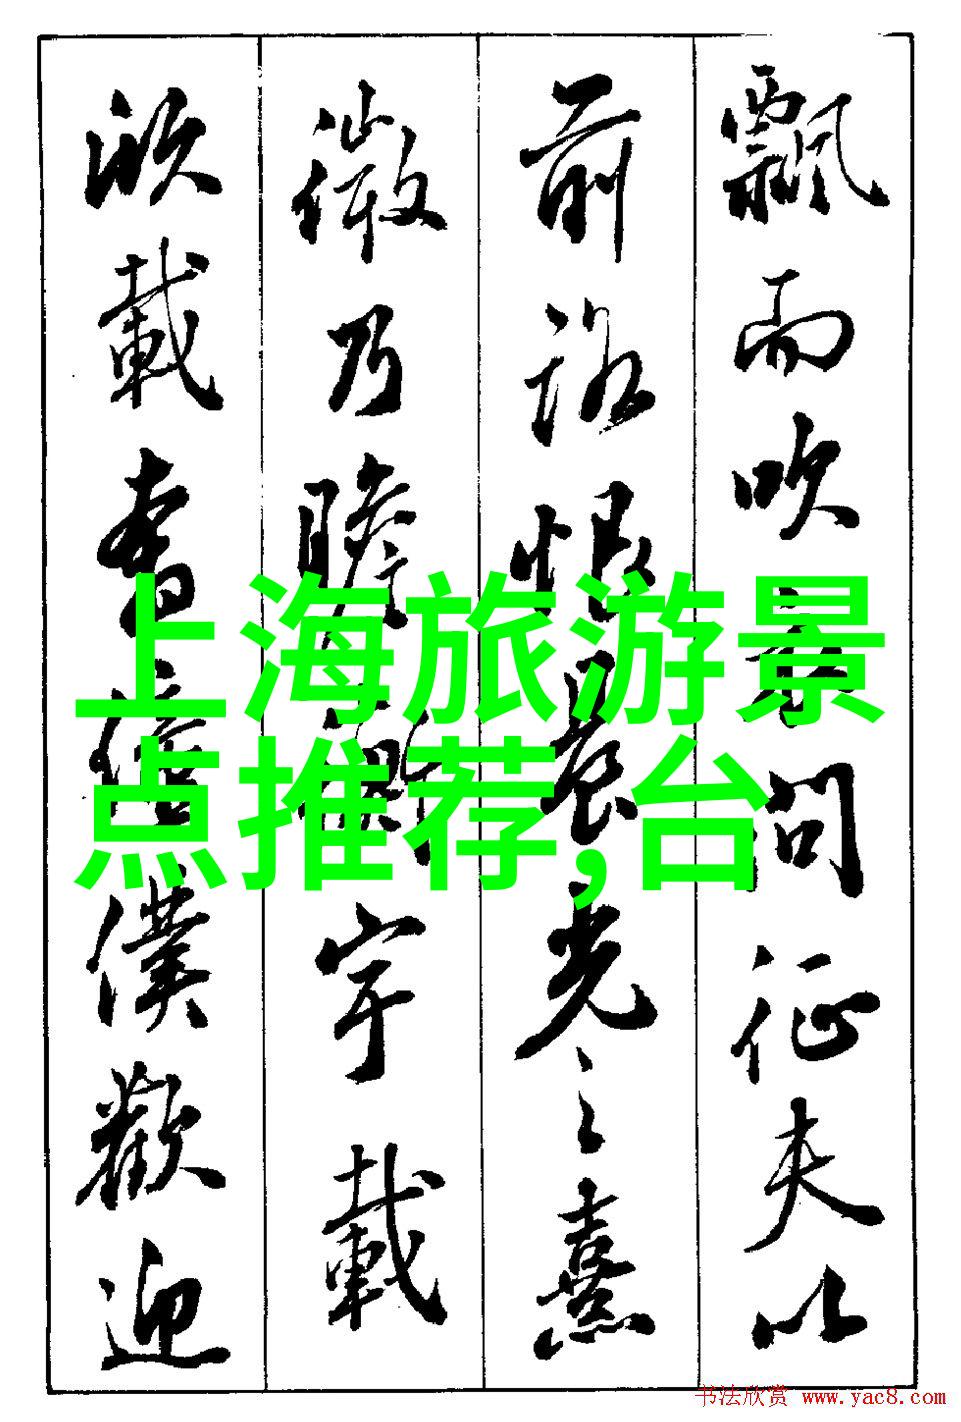 飄而吹衣問征夫以
前路恨晨光之熹
微乃瞻衡宇載
欣載奔僮僕歡迎
上海旅游景
点推荐,台
书法欣赏 www.yac8.com